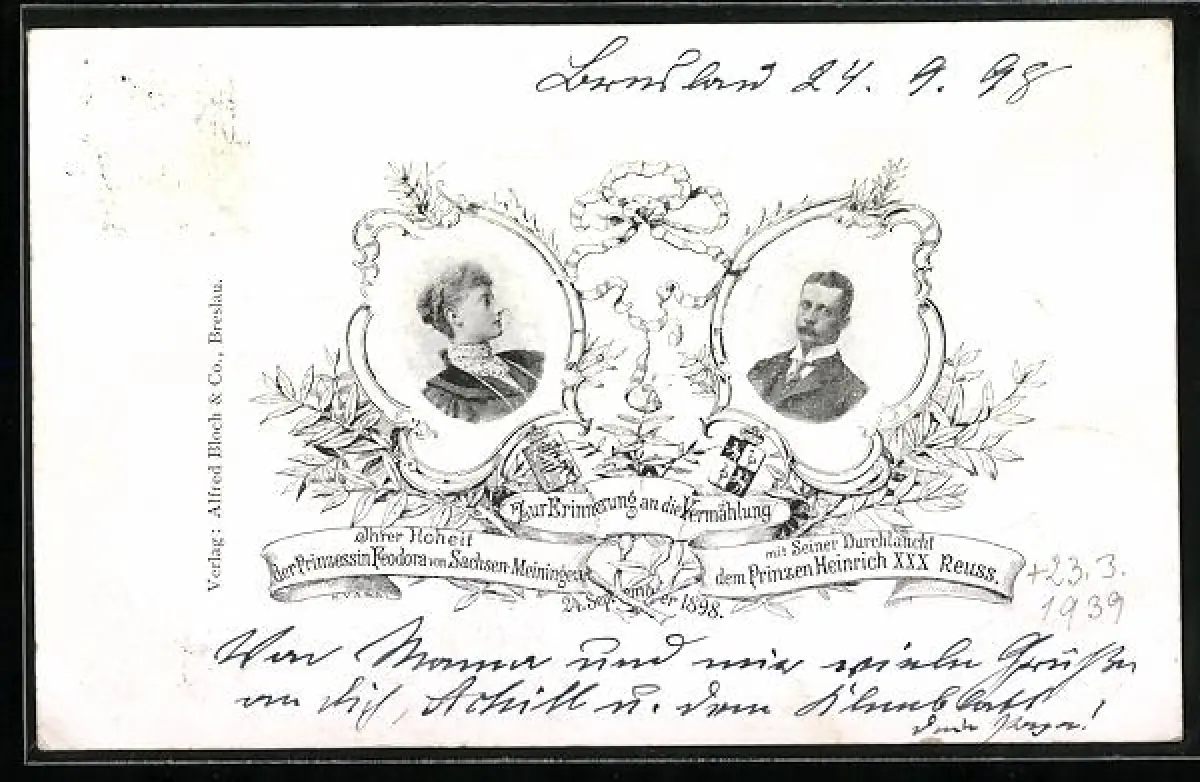 Breslau 24. 9. 98
Verlag: Alfred Bloch & Co., Breslau.
Zur Erinnerung an die Vermählung
Ihrer Hoheit
der Prinzessin Feodora von Sachsen-Meiningen
mit Seiner Durchlaucht
dem Prinzen Heinrich XXX Reuss.
24. September 1898.
+23.3.
1939
Von Mama und mir viele Grüße
an dich, Achill u. dem
dein Papa!